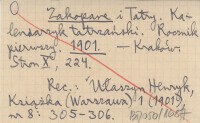 Zakopane i Tatry. Ka-
lendarzyk tatrzański. Rocznik
pierwszy. 1901. — Kraków.
Stron X, 224.
Rec.: Ułaszyn Henryk,
Książka (Warszawa) 1 (1901)
nr 8: 305-306.